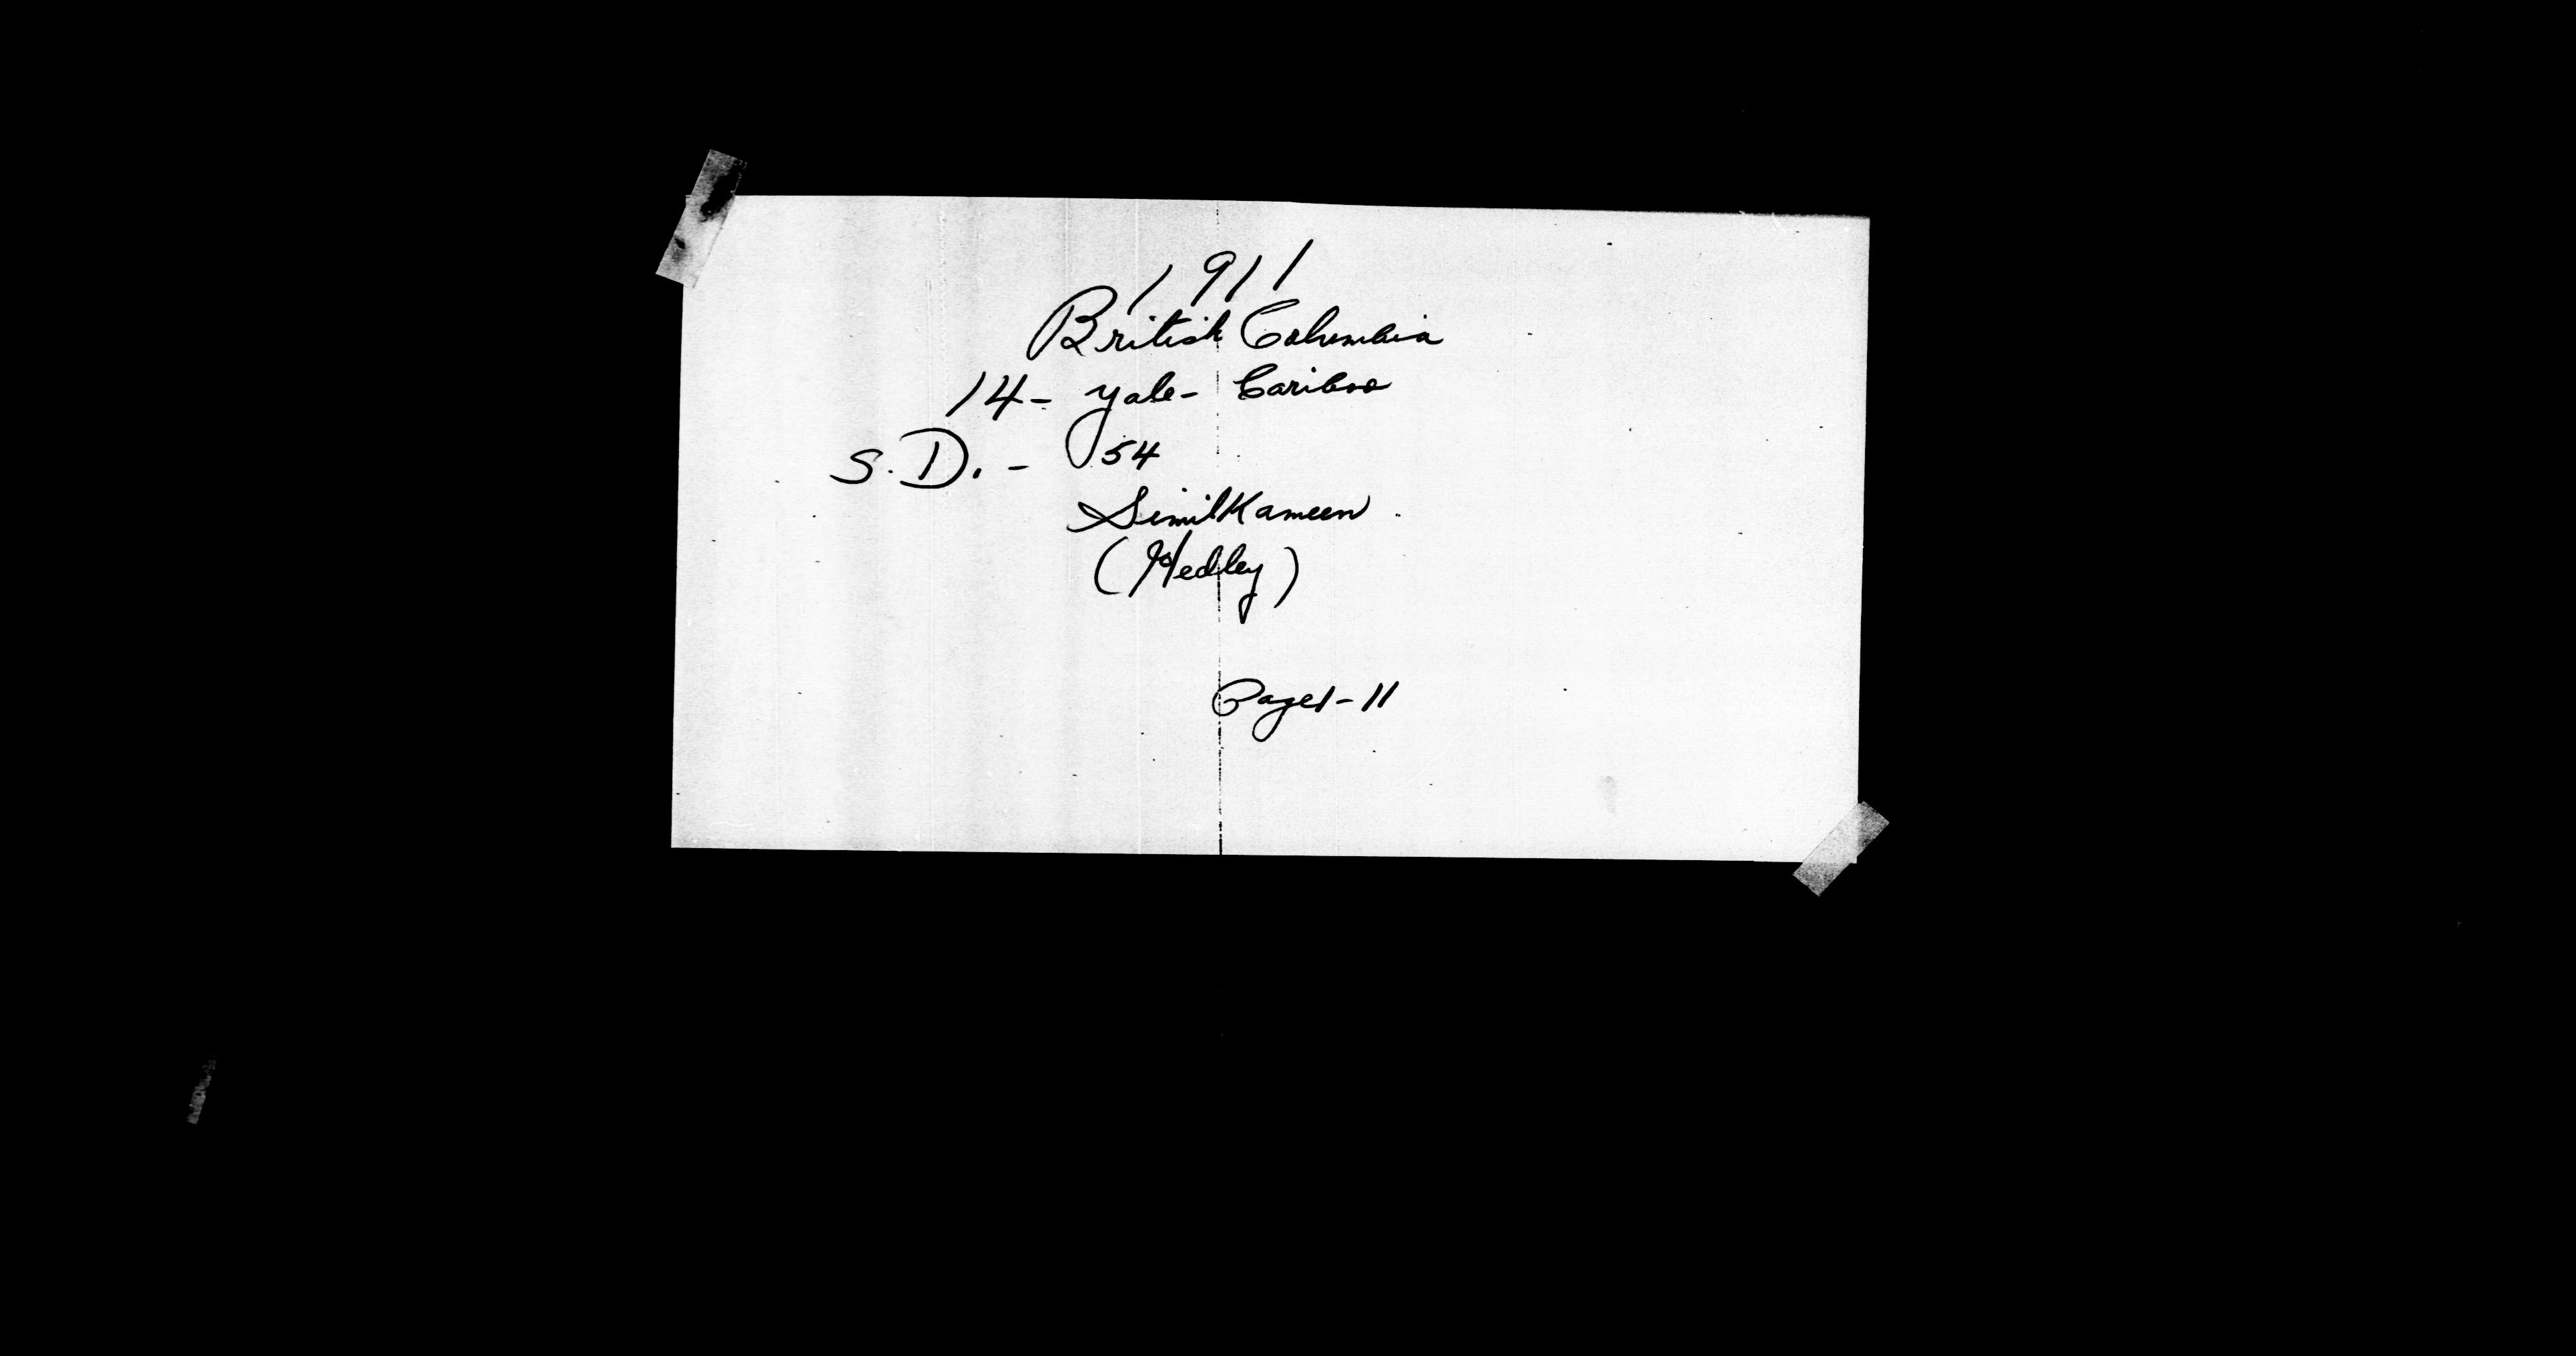 1911
British Columbia
14- Yale- Cariboo
S.D. - 54
SimilKameen
(Hedley)
Page 1-11